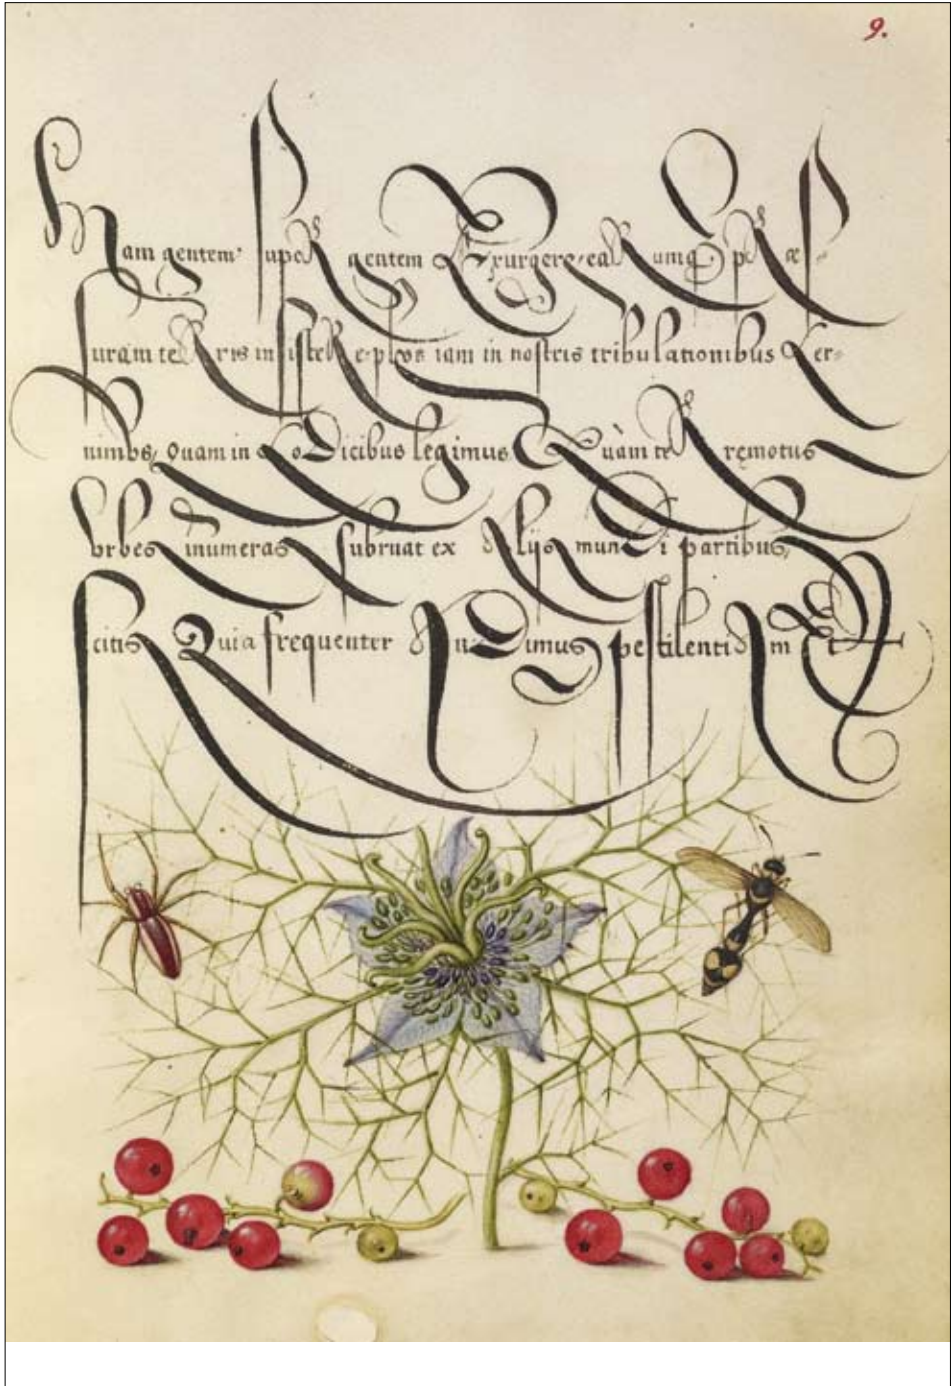 9.
Nam gentem super gentem exurgere, earumq; præs-
suram terris insistere, plus iam in nostris tribulationibus cer-
nimus, Quam in Codicibus legimus Quàm terręmotus
Vrbes inumeras subruat ex aliis mundi partibus,
scitis Quia frequenter audimus pestilentiam et